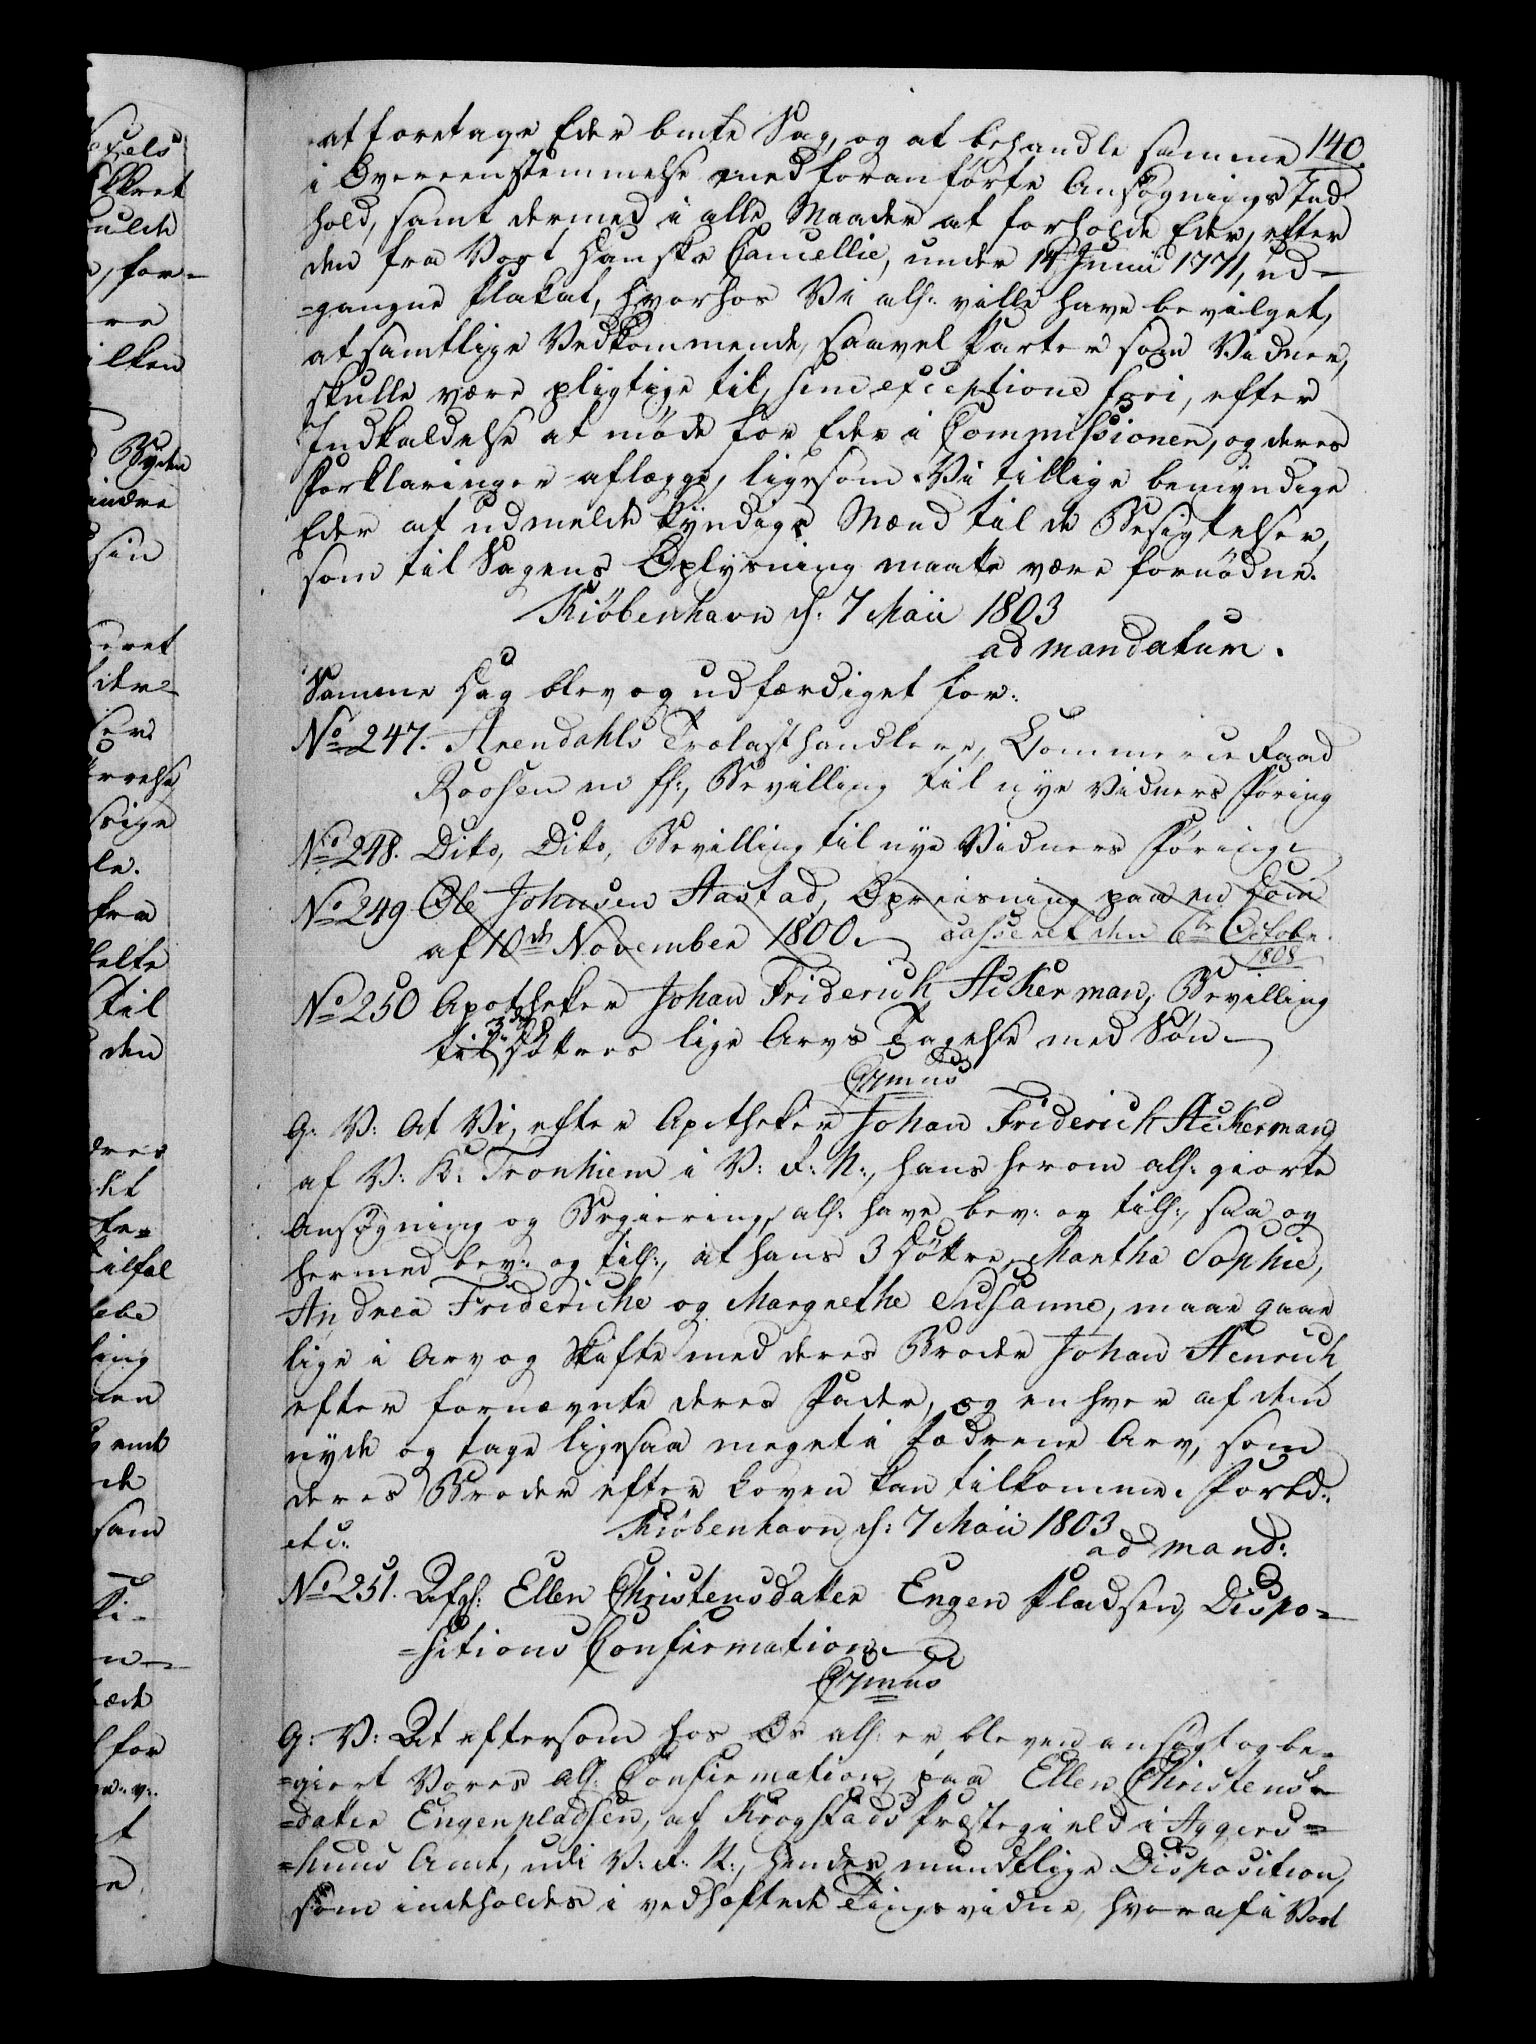 140.
at foretage Eder bmte Sag, og at behandle samme
i Overeenstemmelse med foranførte Ansøgnings Ind-
hold, samt dermed i alle Maader at forholde Eder, efter
den fra Vort danske Cancellie, under 14 Junii 1771, ud-
=gangne Plakat, hvorhos Vi all: ville have bevilget,
at samtlige Vedkommende, saavel Parter som Vidner,
skulle være pligtige til, sine exceptione fori, efter
Indkaldelse at møde for Eder i Commissionen, og deres
Forklaringer aflægge, ligesom Vi tillige bemyndige
Eder at udmelde kyndige Mænd til de Besigtelser,
som til Sagens Oplysning maatte være fornødne.
Kiøbenhavn d: 7 Maii 1803
ad mandatum.
Samme Dag blev og udfærdiget for:
No 247. Arendahls Trælasthandlere, Commerceraad
Roosen m fl:, Bevilling til nye Vidners Føring
No 248. Dito, Dito, Bevilling til nye Vidners Føring
No 249 Ole Johnsen Aastad, Opreisning paa en Dom
af 10de November 1800. casseret den 6te Octobr
1808
No 250 Apotheker Johan Friderich Ackerman, Bevilling
til 3de Døttres lige Arvs Tagelse med Søn
Crmus
G: V: At Vi, efter Apotheker Johan Friderich Ackerman
af V: K: Tronhiem i V: R: N:, hans herom all: giorte
Ansøgning og Begiering, all: have bev: og till:, saa og
hermed bev: og till:, at hans 3 Døttre, Martha Sophie,
Andrea Frideriche og Margrethe Susanne, maae gaae
lige i Arv og Skifte med deres Broder Johan Henrich
efter fornævnte deres Fader, og enhver af dem
nyde og tage ligesaa meget i fædrene Arv, som
deres Broder efter Loven kan tilkomme. Forbd:
etc: Kiøbenhavn d: 7 Maii 1803
ad mand:
No 251. Afg: Ellen Christensdatter Engen Pladsen, Dispo=
=sitions Confirmation
Crmus
G: V: At eftersom hos Os all: er bleven ansøgt og be-
=giert Vores all: Confirmation, paa Ellen Christens=
=datter Engenpladsen, af Krogstads Præstegield i Aggers=
=huus Amt, udi V: R: N:, hendes mundtlige Disposition,
som indeholdes i vedhæftede Tingsvidne, hvoraf i Vort